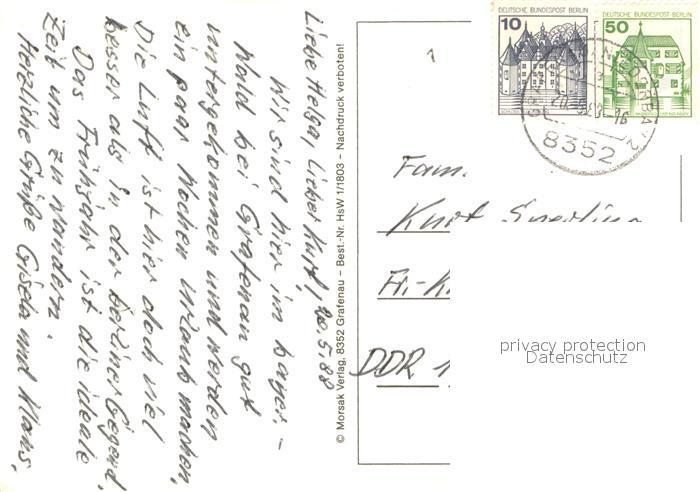 Liebe Helga, Lieber Kurt, 20.5.88
Wir sind hier im bayer.-
Wald bei Grafenau gut
untergekommen und werden
ein paar Wochen Urlaub machen,
Die Luft ist hier doch viel
besser als in der Berliner Gegend.
Das Frühjahr ist die ideale
Zeit um zu wandern.
Herzliche Grüße Gisela und Klaus.
© Morsak Verlag, 8352 Grafenau – Best.-Nr. HsW 1/1803 – Nachdruck verboten!
1
DEUTSCHE BUNDESPOST BERLIN
10
DEUTSCHE BUNDESPOST BERLIN
50
8352
Fam.
Kurt
DDR 1
privacy protection
Datenschutz